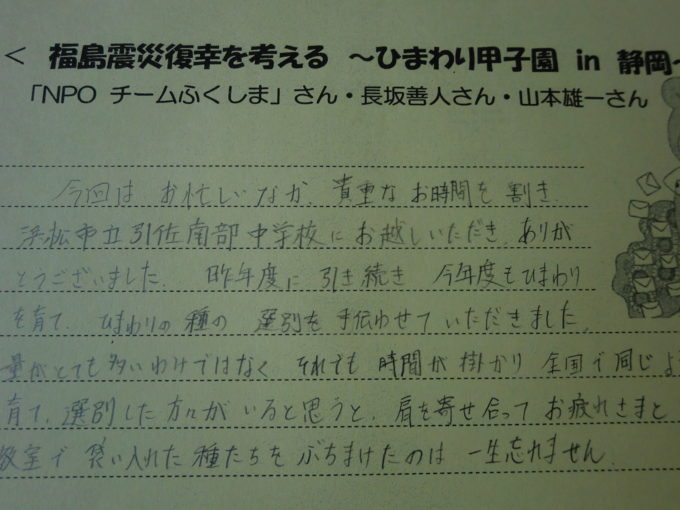 < 福島震災復幸を考える ～ひまわり甲子園 in 静岡~
「NPO チームふくしま」さん・長坂善人さん・山本雄一さん
今回は お忙しいなか、貴重な お時間を 割き、
浜松市立 引佐南部中学校に お越しいただき、ありが
とうございました。 昨年度に 引き続き 今年度もひまわり
を育て、ひまわりの 種の 選別を 手伝わせて いただきました。
量がとても多いわけではなく それでも 時間が 掛かり 全国で 同じよ
育て、選別した 方々が いると思うと、肩を寄せ合って お疲れさまと
教室で 袋に入れた 種たちを ぶちまけたのは 一生忘れません。